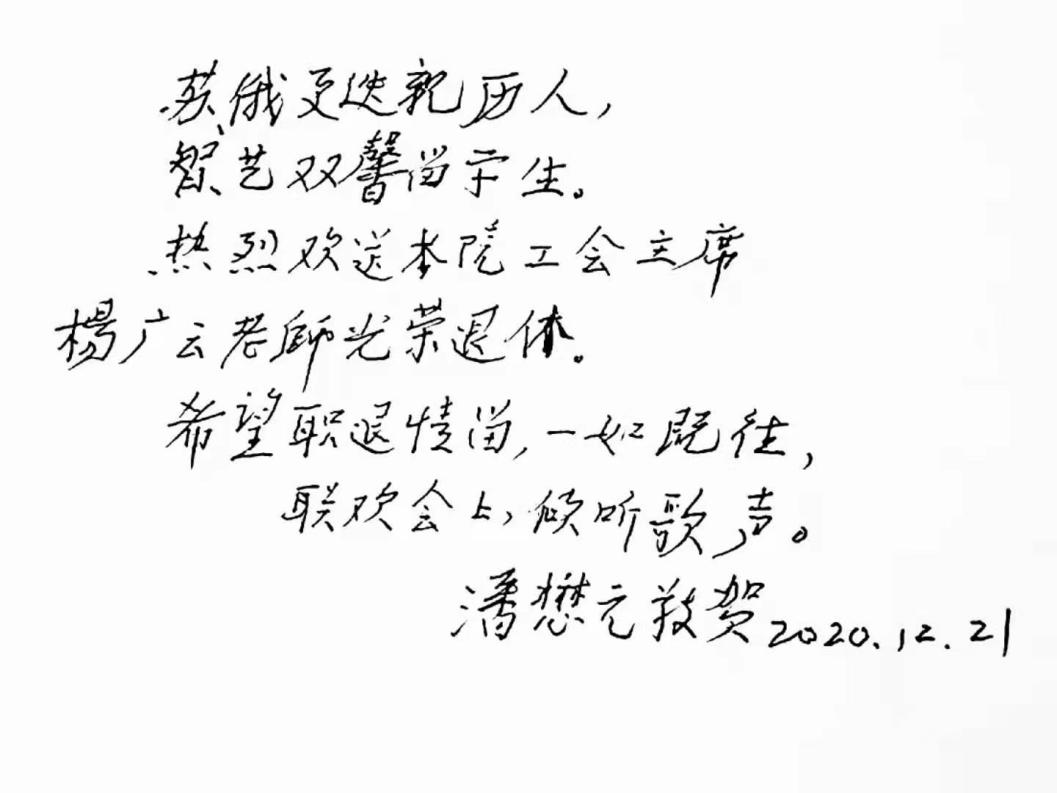 苏俄更迭亲历人，
智艺双馨留学生。
热烈欢送本院工会主席
楊广云老師光荣退休。
希望职退情留，一如既往，
联欢会上，倾听歌声。
潘懋元敬贺 2020.12.21